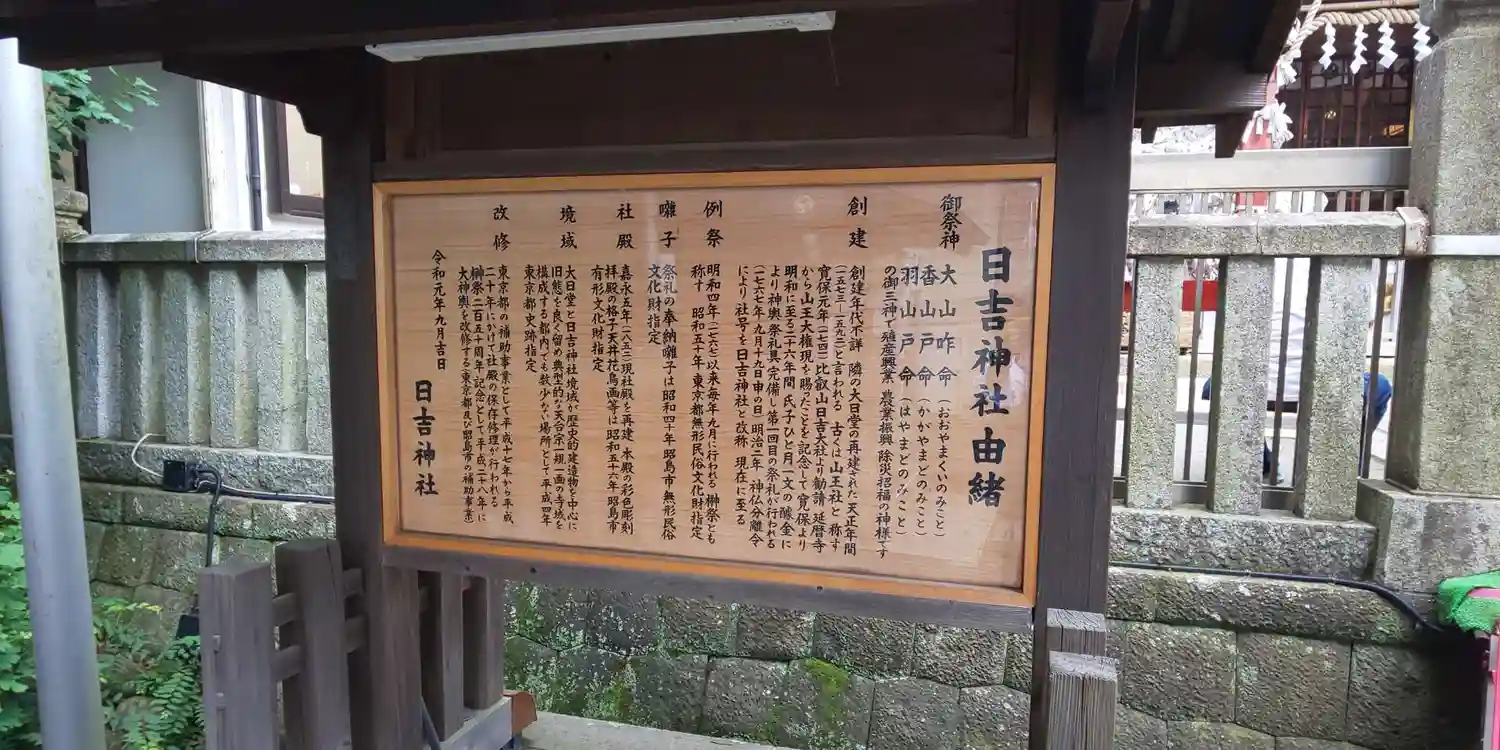 日吉神社由緒
御祭神
大山咋命(おおやまくいのみこと)
香山戸命(かがやまどのみこと)
羽山戸命(はやまどのみこと)
の御三神で殖産興業 農業振興 除災招福の神様です
創建
創建年代不詳 隣の大日堂の再建された天正年間
(一五七三―一五九二)と言われる 古くは山王社と称す
寛保元年(一七四一)比叡山日吉大社より勧請 延暦寺
から山王大権現を賜ったことを記念して寛保より
明和に至る二十六年間 氏子ひと月一文の醵金に
より神輿祭礼具完備し第一回目の祭礼が行われる
(一七六七年九月十九日申の日)明治二年 神仏分離令
により社号を日吉神社と改称 現在に至る
例祭
明和四年(一七六七)以来毎年九月に行われる 榊祭とも
称す 昭和五十年 東京都無形民俗文化財指定
囃子
祭礼の奉納囃子は昭和四十年 昭島市無形民俗
文化財指定
社殿
嘉永五年(一八五二)現社殿を再建 本殿の彩色彫刻
拝殿の格子天井花鳥画等は昭和五十六年 昭島市
有形文化財指定
境域
大日堂と日吉神社境域が歴史的建造物を中心に
旧態を良く留め典型的な天台宗の規一画の寺域を
構成する都内でも数少ない場所として平成四年
東京都史跡指定
改修
東京都の補助事業として平成十七年から平成
二十年にかけ社殿の保存修理が行われる
榊祭二百五十周年記念として平成二八年に
大神輿を改修する(東京都及び昭島市の補助事業)
令和元年九月吉日
日吉神社